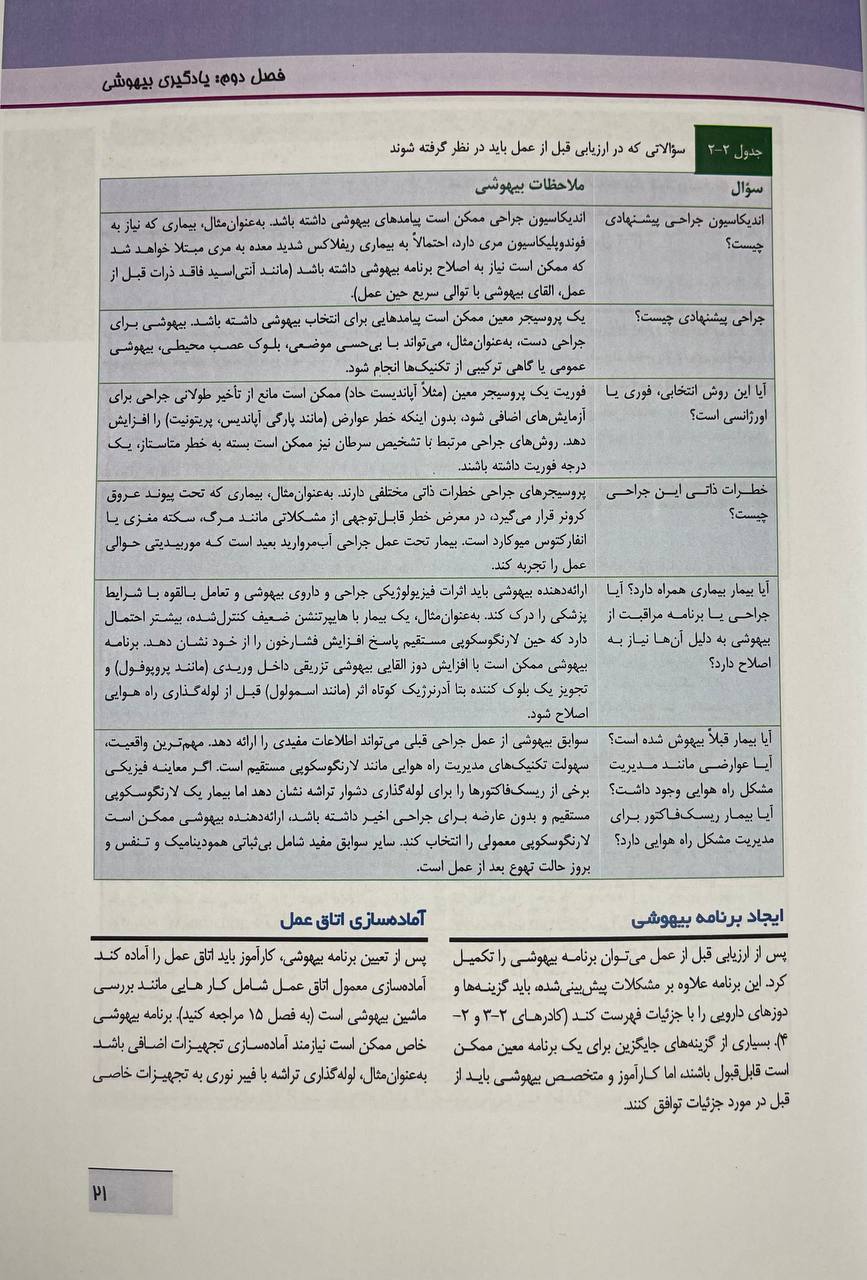 فصل دوم: یادگیری بیهوشی
جدول ۲-۲ سؤالاتی که در ارزیابی قبل از عمل باید در نظر گرفته شوند
سؤال
ملاحظات بیهوشی
اندیکاسیون جراحی پیشنهادی
چیست؟
اندیکاسیون جراحی ممکن است پیامدهای بیهوشی داشته باشد. به‌عنوان‌مثال، بیماری که نیاز به
فوندوپلیکاسیون مری دارد، احتمالاً به بیماری ریفلاکس شدید معده به مری مبتلا خواهد شد
که ممکن است نیاز به اصلاح برنامه بیهوشی داشته باشد (مانند آنتی‌اسید فاقد ذرات قبل از
عمل، القای بیهوشی با توالی سریع حین عمل).
جراحی پیشنهادی چیست؟
یک پروسیجر معین ممکن است پیامدهایی برای انتخاب بیهوشی داشته باشد. بیهوشی برای
جراحی دست، به‌عنوان‌مثال، می‌تواند با بی‌حسی موضعی، بلوک عصب محیطی، بیهوشی
عمومی یا گاهی ترکیبی از تکنیک‌ها انجام شود.
آیا این روش انتخابی، فوری یا
اورژانسی است؟
فوریت یک پروسیجر معین (مثلاً آپاندیست حاد) ممکن است مانع از تأخیر طولانی جراحی برای
آزمایش‌های اضافی شود، بدون اینکه خطر عوارض (مانند پارگی آپاندیس، پریتونیت) را افزایش
دهد. روش‌های جراحی مرتبط با تشخیص سرطان نیز ممکن است بسته به خطر متاستاز، یک
درجه فوریت داشته باشند.
خطرات ذاتی این جراحی
چیست؟
پروسیجرهای جراحی خطرات ذاتی مختلفی دارند. به‌عنوان‌مثال، بیماری که تحت پیوند عروق
کرونر قرار می‌گیرد، در معرض خطر قابل‌توجهی از مشکلاتی مانند مرگ، سکته مغزی یا
انفارکتوس میوکارد است. بیمار تحت عمل جراحی آب‌مروارید بعید است که موربیدیتی حوالی
عمل را تجربه کند.
آیا بیمار بیماری همراه دارد؟ آیا
جراحی یا برنامه مراقبت از
بیهوشی به دلیل آن‌ها نیاز به
اصلاح دارد؟
ارائه‌دهنده بیهوشی باید اثرات فیزیولوژیکی جراحی و داروی بیهوشی و تعامل بالقوه با شرایط
پزشکی را درک کند. به‌عنوان‌مثال، یک بیمار با هایپرتنشن ضعیف کنترل‌شده، بیشتر احتمال
دارد که حین لارنگوسکوپی مستقیم پاسخ افزایش فشارخون را از خود نشان دهد. برنامه
بیهوشی ممکن است با افزایش دوز القایی بیهوشی تزریقی داخل وریدی (مانند پروپوفول) و
تجویز یک بلوک کننده بتا آدرنرژیک کوتاه اثر (مانند اسمولول) قبل از لوله‌گذاری راه هوایی
اصلاح شود.
آیا بیمار قبلاً بیهوش شده است؟
آیا عوارضی مانند مدیریت
مشکل راه هوایی وجود داشت؟
آیا بیمار ریسک‌فاکتور برای
مدیریت مشکل راه هوایی دارد؟
سوابق بیهوشی از عمل جراحی قبلی می‌تواند اطلاعات مفیدی را ارائه دهد. مهم‌ترین واقعیت،
سهولت تکنیک‌های مدیریت راه هوایی مانند لارنگوسکوپی مستقیم است. اگر معاینه فیزیکی
برخی از ریسک‌فاکتورها را برای لوله‌گذاری دشوار تراشه نشان دهد اما بیمار یک لارنگوسکوپی
مستقیم و بدون عارضه برای جراحی اخیر داشته باشد، ارائه‌دهنده بیهوشی ممکن است
لارنگوسکوپی معمولی را انتخاب کند. سایر سوابق مفید شامل بی‌ثباتی همودینامیک و تنفس و
بروز حالت تهوع بعد از عمل است.
ایجاد برنامه بیهوشی
پس از ارزیابی قبل از عمل می‌توان برنامه بیهوشی را تکمیل
کرد. این برنامه علاوه بر مشکلات پیش‌بینی‌شده، باید گزینه‌ها و
دوزهای دارویی را با جزئیات فهرست کند (کادرهای ۲-۳ و ۲-
۴). بسیاری از گزینه‌های جایگزین برای یک برنامه معین ممکن
است قابل‌قبول باشند، اما کارآموز و متخصص بیهوشی باید از
قبل در مورد جزئیات توافق کنند.
آماده‌سازی اتاق عمل
پس از تعیین برنامه بیهوشی، کارآموز باید اتاق عمل را آماده کند.
آماده‌سازی معمول اتاق عمل شامل کار هایی مانند بررسی
ماشین بیهوشی است (به فصل ۱۵ مراجعه کنید). برنامه بیهوشی
خاص ممکن است نیازمند آماده‌سازی تجهیزات اضافی باشد.
به‌عنوان‌مثال، لوله‌گذاری تراشه با فیبر نوری به تجهیزات خاصی
۲۱